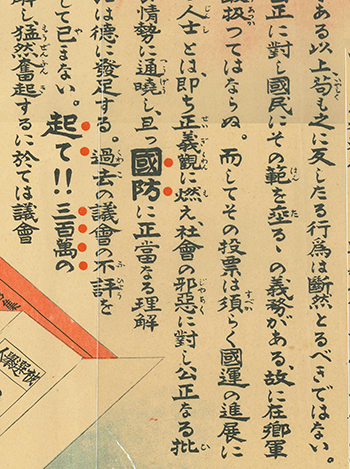 ある以上苟も之に反したる行爲は斷然とるべきではない。
正に對し國民にその範を埀るゝの義務がある、故に在鄕軍
扱つてはならぬ。而してその投票は須らく國運の進展に
人士とは、即ち正義觀に燃え、社會の邪惡に對し公正なる批
情勢に通曉し、且つ國防に正當なる理解
は德に發足する。過去の議會の不評を
して已まない。起て!!三百萬の
し、猛然奮起するに於ては議會